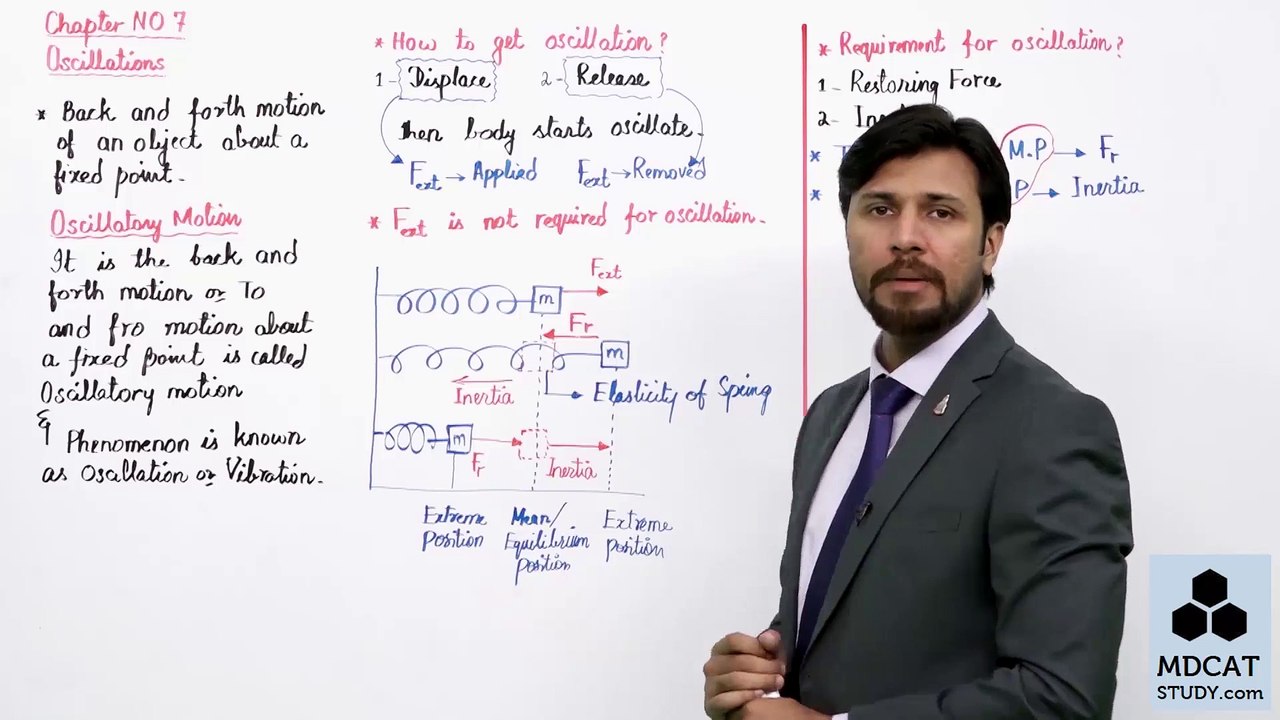 Chapter NO 7
Oscillations
* Back and forth motion
of an object about a
fixed point.
Oscillatory Motion
It is the back and
forth motion or To
and fro motion about
a fixed point is called
Oscillatory motion
&
Phenomenon is known
as Oscallation or Vibration.
* How to get oscillation?
1- Displace 2- Release
then body starts oscillate.
Fext → Applied Fext → Removed
* Fext is not required for oscillation.
m Fext
Fr
m
Inertia
Elasticity of Spring
m
Fr Inertia
Extreme Position
Mean/
Equilibrium
position
Extreme
position
* Requirement for oscillation?
1- Restoring Force
2-
* M.P → Fr
* P → Inertia
MDCAT
STUDY.com